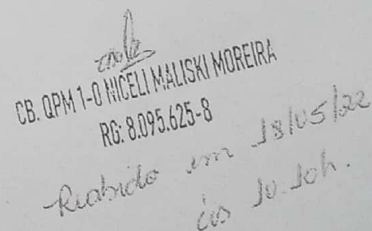 CB. QPM 1-0 NICELI MALISKI MOREIRA
RG: 8.095.625-8
Recebido em 18/05/22
às 10:10h.